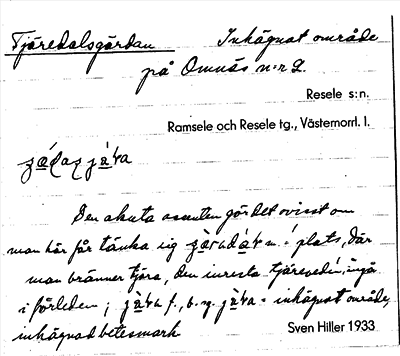 Tjäredalsgärdan Inhägnat område
på Omnäs n:r 2.
Resele s:n.
Ramsele och Resele tg., Västernorrl. l.
Den akuta accenten gör det ovisst om
man här får tänka sig n. 'plats, där
man bränner tjära, den inresta tjärveden', ingå
i förleden; f., b. sg. = inhägnat område,
inhägnad betesmark
Sven Hiller 1933